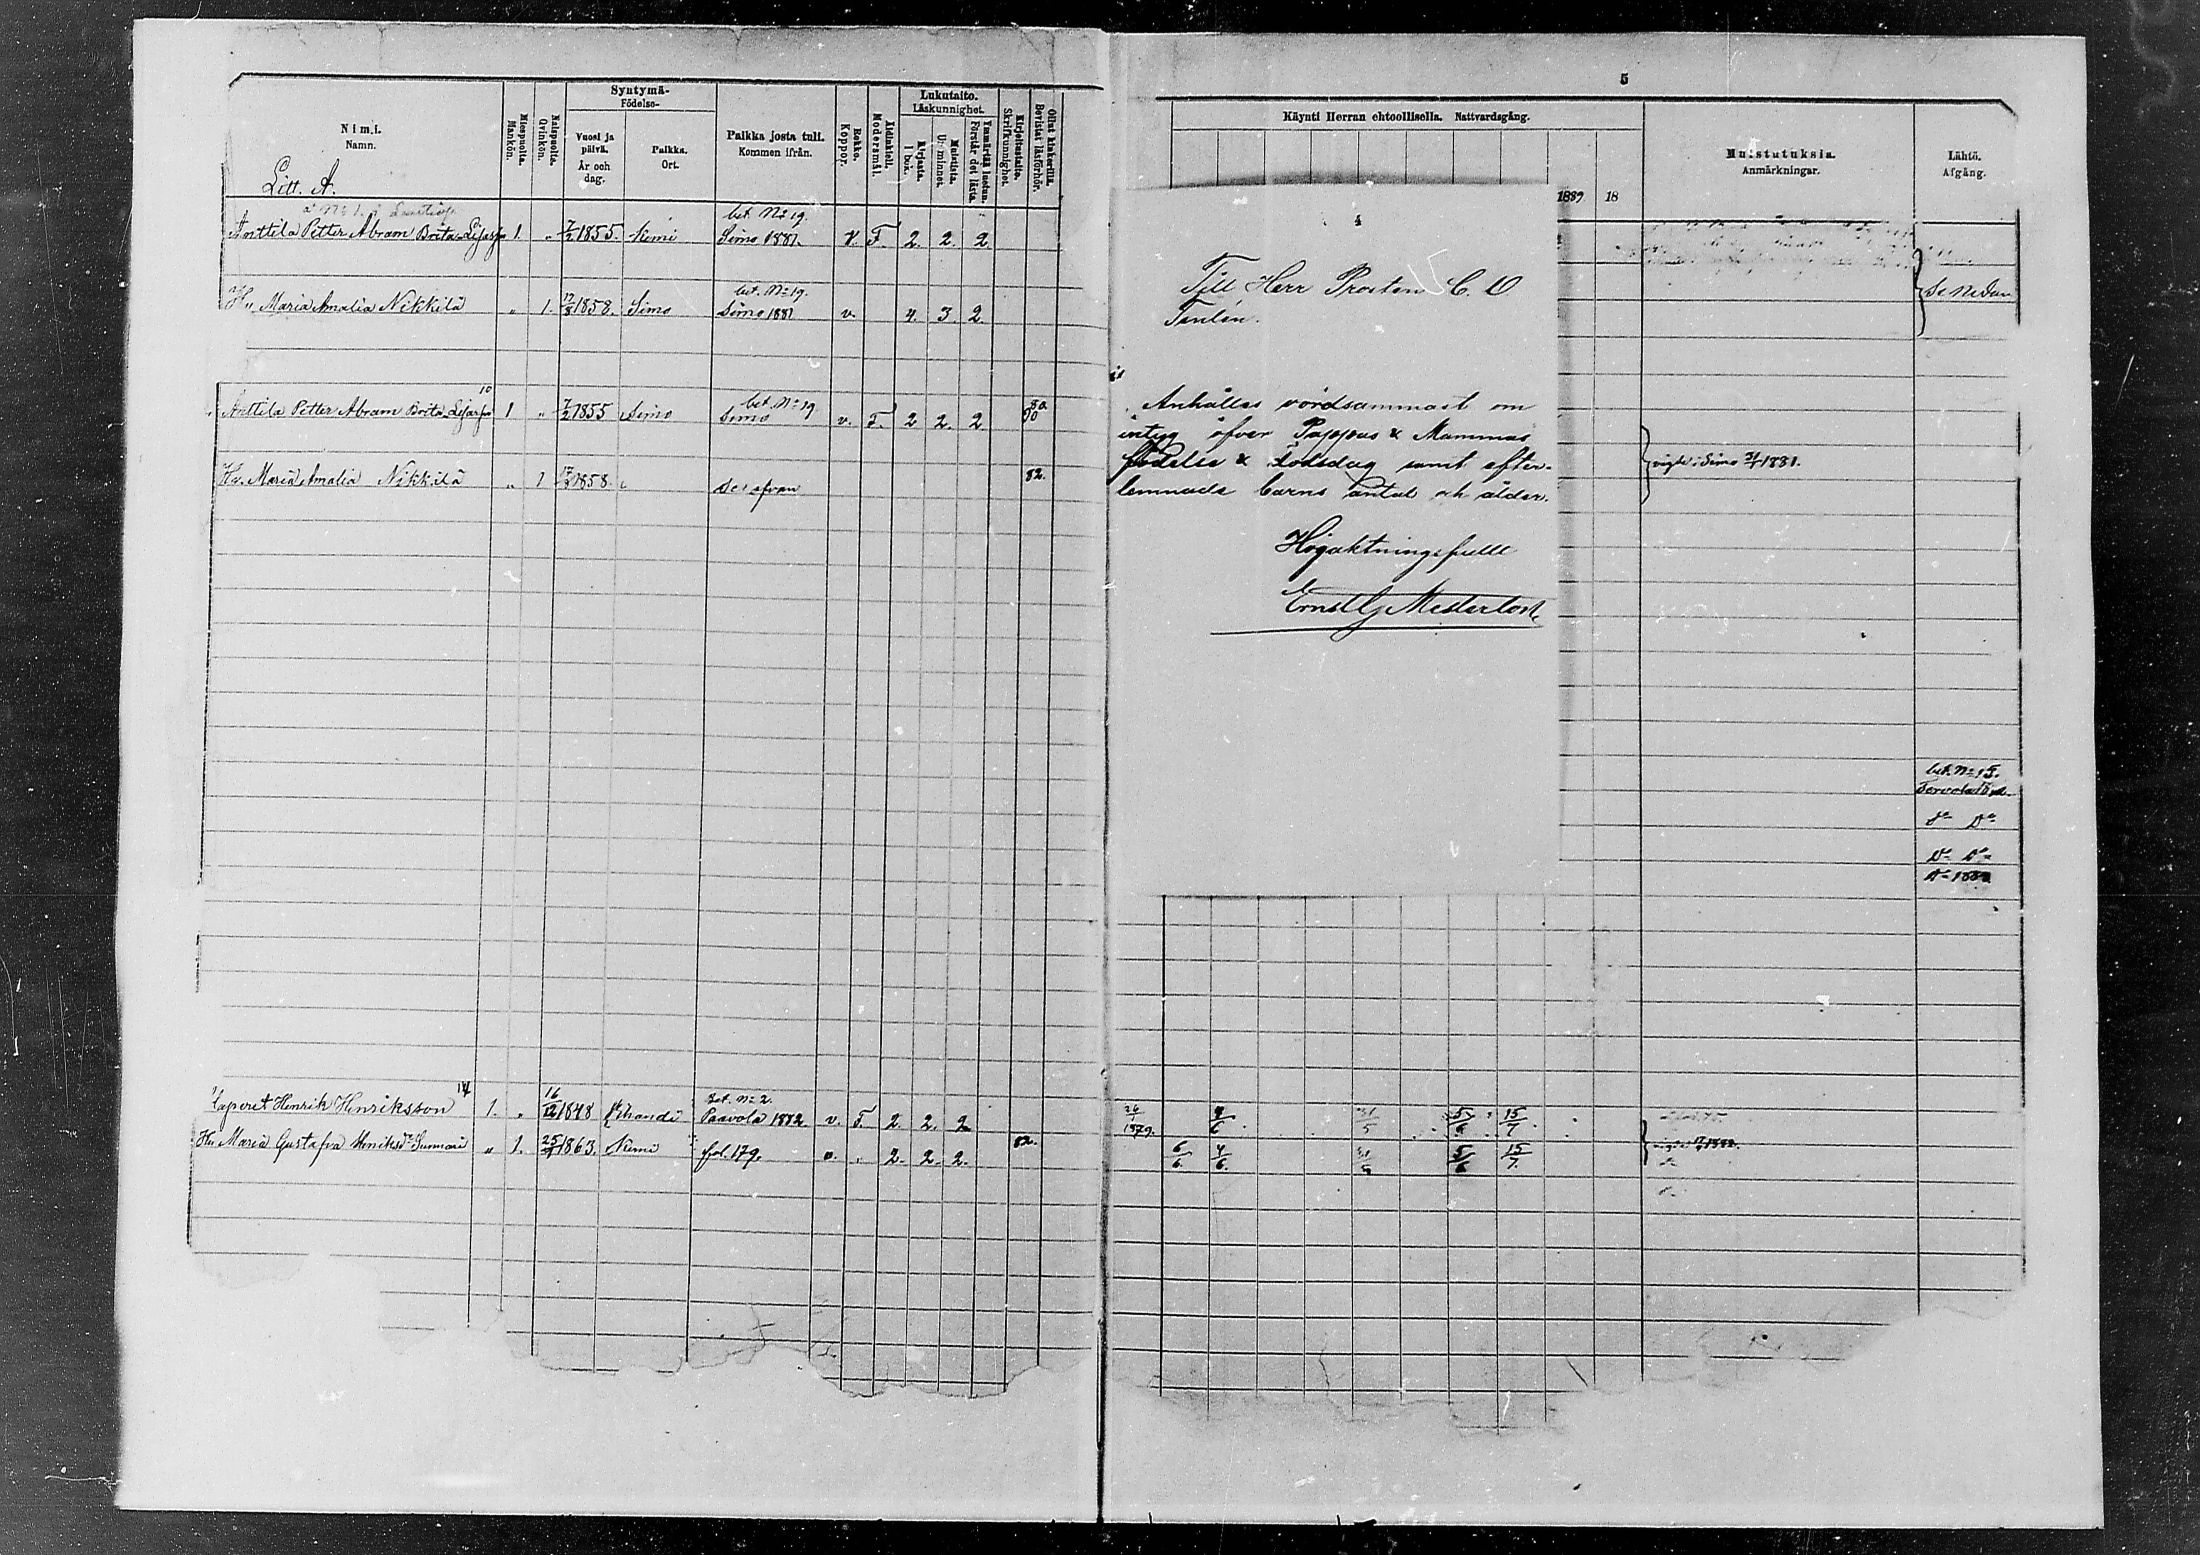 Nimi.
Namn.
Miespuolta.
Mankön.
Naispuolta.
Qvinkön.
Syntymä-
Födelse-
Vuosi ja päivä.
År och dag.
Paikka.
Ort.
Paikka josta tuli.
Kommen ifrån.
Rokko.
Koppor.
Äidinkieli.
Modersmål.
Lukutaito.
Läskunnighet.
Kirjasta.
I bok.
Muistista.
Ur minnet.
Ymmärtää luetun.
Förstår det lästa.
Kirjoitustaito.
Skrifkunnighet.
Ollut kinkerillä.
Bevistat läsförhör.
Litt. A.
bet. No 19.
Anttila Petter Abram Brita 1. " 7/2 1855. Kemi Simo 1881. v. F. 2. 2. 2.
bet. No 19.
Hu Maria Amalia Nikkilä " 1. 1858. Simo Simo 1881 v. 4. 3. 2.
10
bet. No 19
Anttila Petter Abram Brita 1 " 7/2 1855 Simo Simo v. F. 2 2. 2.
Hu. Maria Amalia Nikkilä " 1 1858. 82.
14
bet. No 2.
Henrik Henriksson 1. " 16/12 1848 Paavola 1882 v. F. 2. 2. 2
Hu Maria Gustafva Henriksdr " 1. 25/ 1863. Kemi fol. 179. v. " 2. 2. 2. 82.
5
Käynti Herran ehtoollisella. Nattvardsgång.
1889 18
Muistutuksia.
Anmärkningar.
Lähtö.
Afgång.
4
Till Herr Prosten C. O.
Tenlén.
Anhålles vördsammast om
intyg öfver Pappas & Mammas
födelse & dödsdag samt efter-
lemnade barns antal och ålder.
Högaktningsfullt
Ernst G Mesterton
se nedan
vigde i Simo 1881.
bet. No 15.
Tervola
do Do
Do Do
26/1 1879. 4/6 31/5 5/6 15/7
vigde 1882.
6/6 4/6 31/5 5/6 15/7